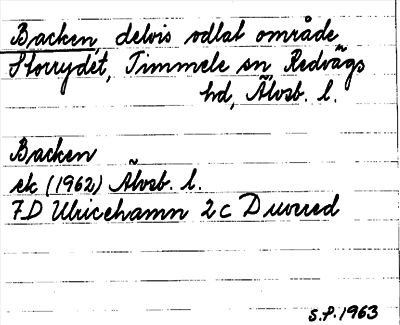 Backen, delvis odlat område
Storrydet, Timmele sn, Redvägs
hd, Älvsb. l.
Backen
ek (1962) Älvsb. l.
7D Ulricehamn 2c Duvered
S.P. 1963